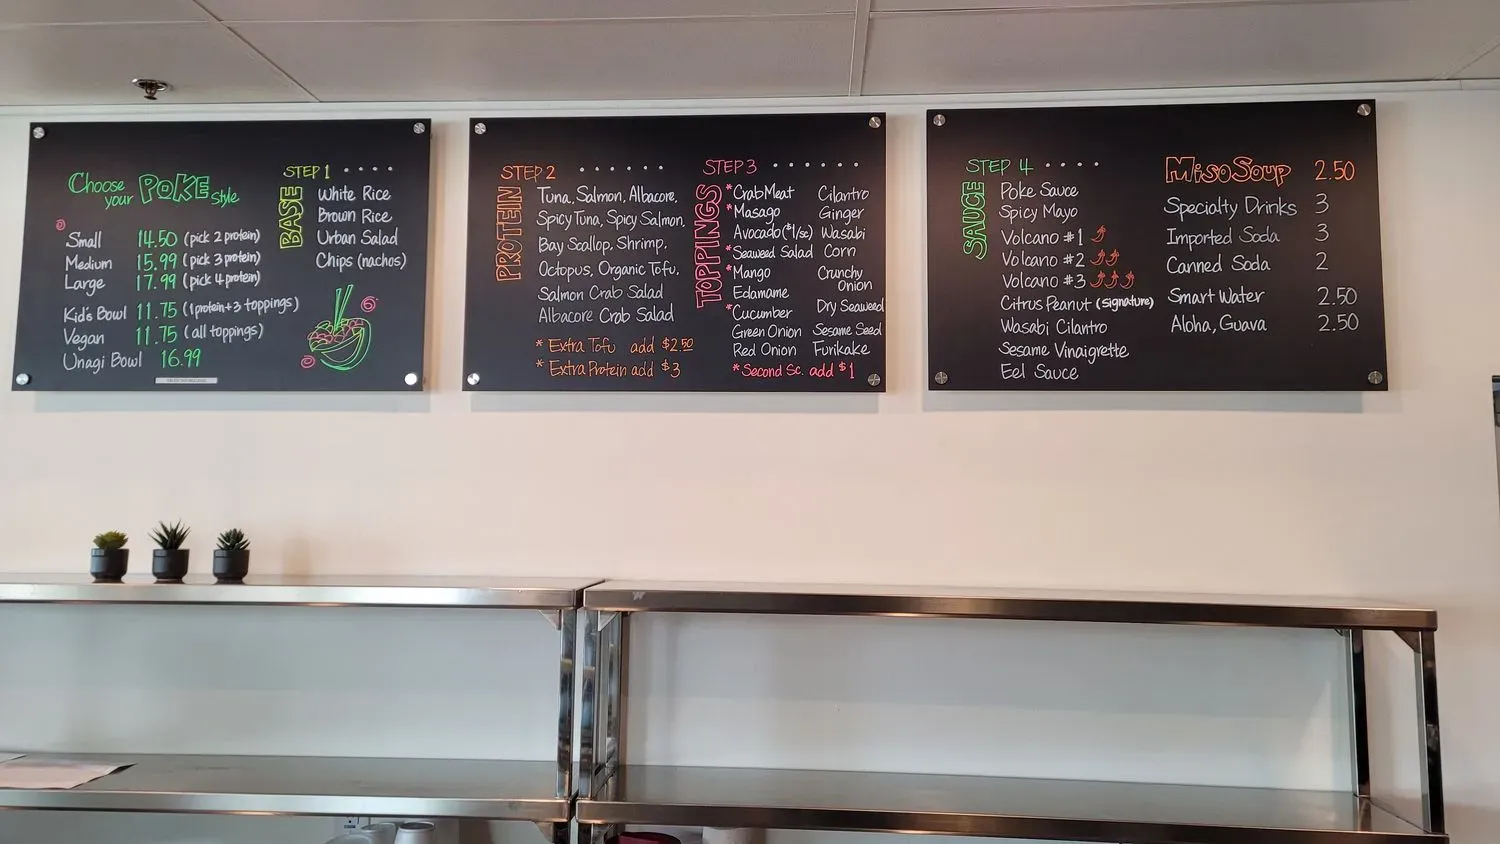 Choose
your POKE style
Small 14.50 (pick 2 protein)
Medium 15.99 (pick 3 protein)
Large 17.99 (pick 4 protein)
Kid's Bowl 11.75 (1 protein+3 toppings)
Vegan 11.75 (all toppings)
Unagi Bowl 16.99
STEP 1 . . . . .
BASE
White Rice
Brown Rice
Urban Salad
Chips (nachos)
STEP 2 . . . . . . .
PROTEIN
Tuna, Salmon, Albacore,
Spicy Tuna, Spicy Salmon,
Bay Scallop, Shrimp,
Octopus, Organic Tofu,
Salmon Crab Salad
Albacore Crab Salad
* Extra Tofu add $2.50
* Extra Protein add $3
STEP 3 . . . . . .
TOPPINGS
*Crab Meat
*Masago
Avocado ($1/sc)
*Seaweed Salad
*Mango
Edamame
*Cucumber
Green Onion
Red Onion
Cilantro
Ginger
Wasabi
Corn
Crunchy
Onion
Dry Seaweed
Sesame Seed
Furikake
*Second Sc. add $1
STEP 4 . . . .
SAUCE
Poke Sauce
Spicy Mayo
Volcano #1
Volcano #2
Volcano #3
Citrus Peanut (signature)
Wasabi Cilantro
Sesame Vinaigrette
Eel Sauce
Miso Soup 2.50
Specialty Drinks 3
Imported Soda 3
Canned Soda 2
Smart Water 2.50
Aloha, Guava 2.50